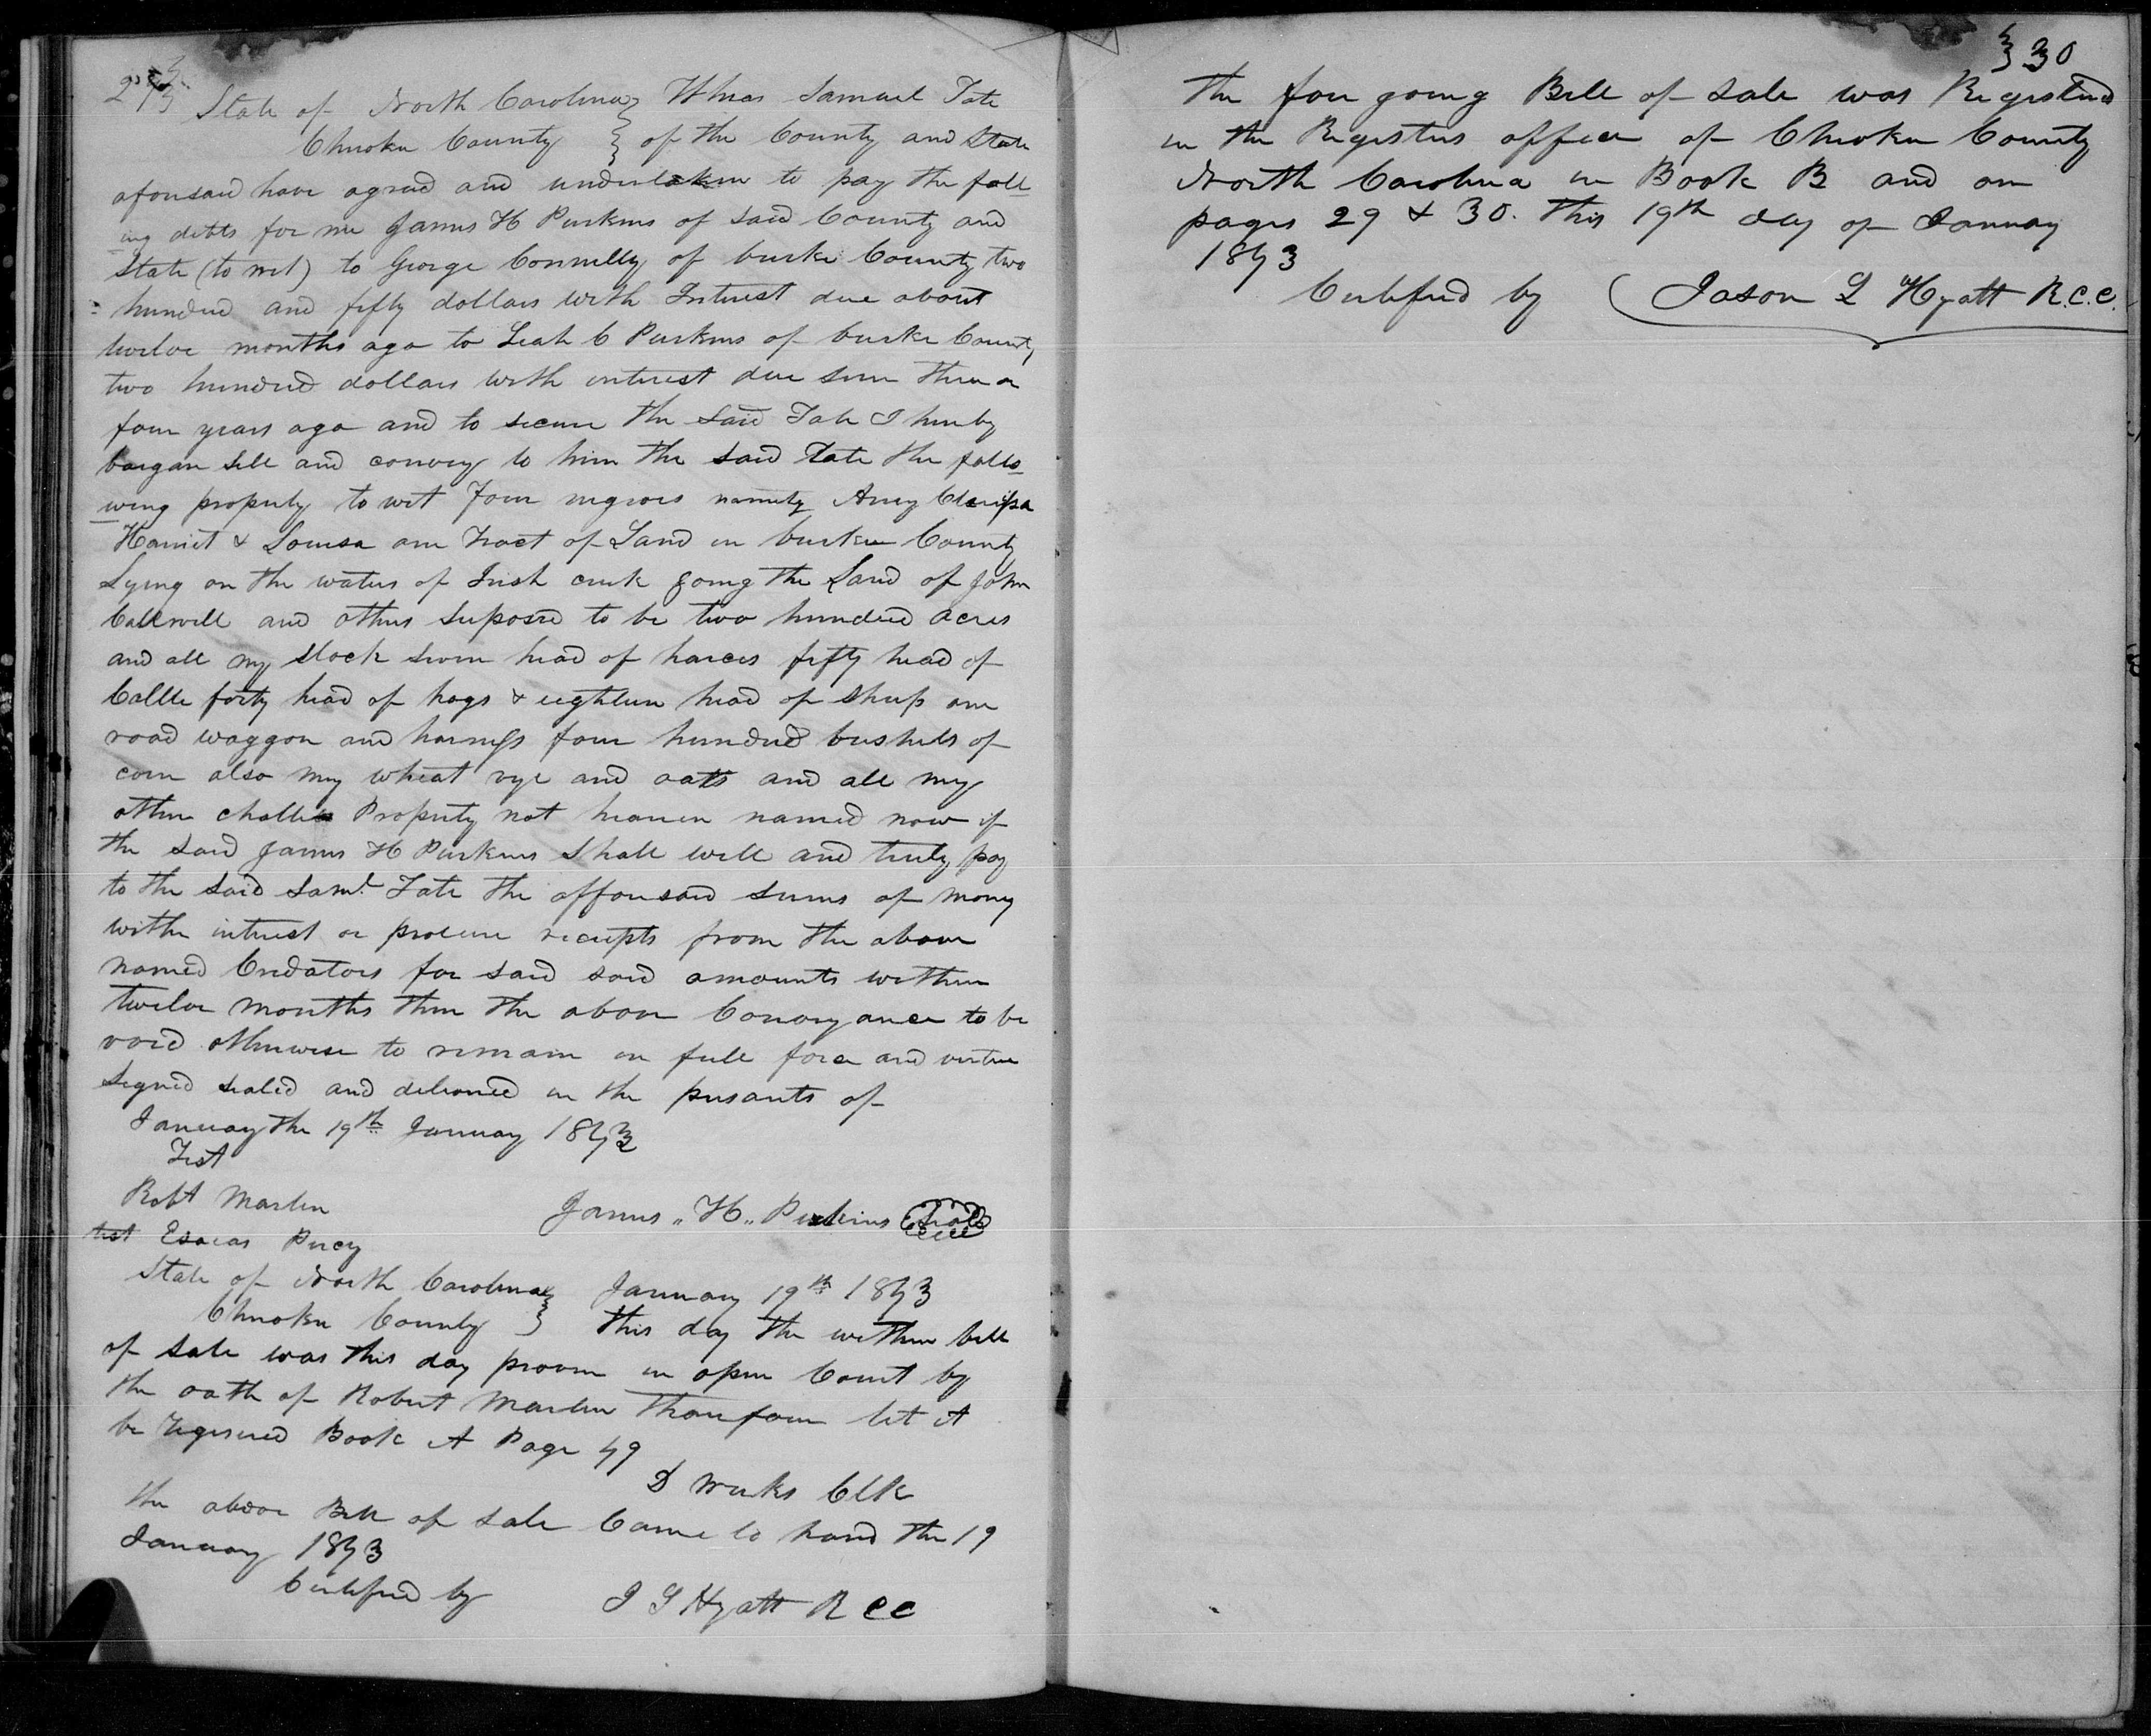 29
State of North Carolina } Whreas Samuel Tate
Cherokee County } of the County and State
aforesaid have agreed and undertaken to pay the foll-
ing debts for me James H Perkins of said County and
State (to wit) to George Connelly of burke County two
hundred and fifty dollars with Interest due about
twelve months ago to Leah C Perkins of burke County
two hundred dollars with interest due some three or
four years ago and to secure the said Tate I hereby
bargan sell and convey to him the said Tate the follo-
wing property to wit Four negroes namely Amy Clarissa
Harriet & Louisa one Tract of Land in burke County
Lying on the waters of Irish creek joing the Land of John
Callwell and others suposed to be two hundred acres
and all my stock seven head of horces fifty head of
Cattle forty head of hogs & eighteen head of sheep one
road waggon and harness four hundred bushels of
corn also my wheat rye and oats and all my
other chattles Property not hearein named now if
the said James H Perkins shall well and truly pay
to the said Saml Tate the afforesaid sums of mony
withe interest or procure receipts from the above
named Credators for said said amounts within
twelve months then the above Conveyance to be
void otherwise to remain in full force and virtue
signed sealed and delivered in the presants of
January the 19th January 1853
Test
Robt Marlen James "H" Perkins Seal
test Esaias Percy
State of North Carolina } January 19th 1853
Cherokee County } This day the within bill
of sale was this day proven in open Court by
the oath of Robert Marlen Tharefore let it
be regesered Book A Page 49
D Weeks Clk
the above Bill of sale Came to hand the 19
January 1853
Certifyed by J L Hyatt R C C
30
The fore going Bill of sale was Registered
in the Registers office of Cherokee County
North Carolina in Book B and on
pages 29 & 30. This 19th day of January
1853
Certifyed by (Jason L Hyatt R.C.C.